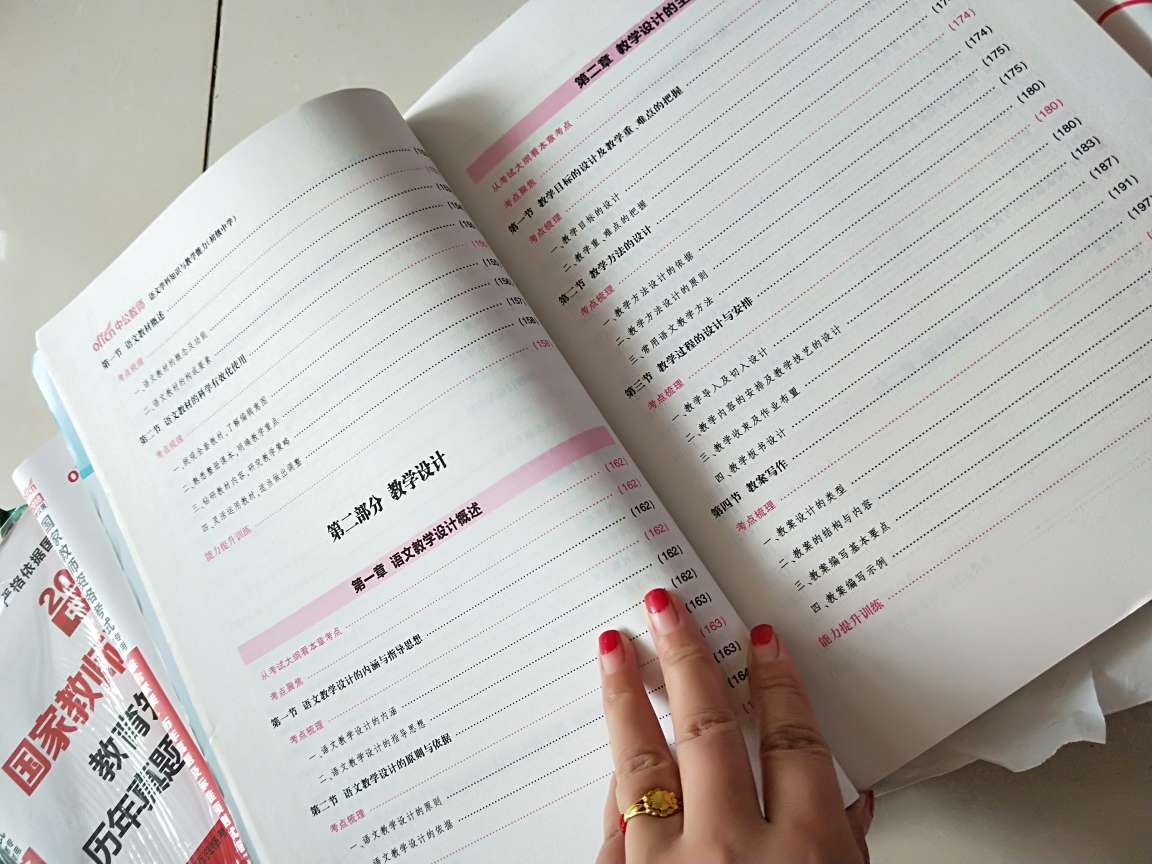 offcn中公教育 语文学科知识与教学能力(初级中学)
第一节 语文教材概述
考点梳理
一、语文教材的概念及功能
二、语文教材的构成要素
第二节 语文教材的科学有效化使用
考点梳理
一、统观全套教材,了解编辑意图
二、熟悉整册课本,明确教学重点
三、钻研教材内容,研究教学策略
四、灵活运用教材,适当做出调整 (158)
能力提升训练 (158)
第二部分 教学设计
第一章 语文教学设计概述
从考试大纲看本章考点 (162)
考点聚焦 (162)
第一节 语文教学设计的内涵与指导思想 (162)
考点梳理 (162)
一、语文教学设计的内涵 (162)
二、语文教学设计的指导思想 (162)
第二节 语文教学设计的原则与依据 (163)
考点梳理 (163)
一、语文教学设计的原则 (163)
语文教学设计的依据
第二章 教学设计的
从考试大纲看本章考点
考点聚焦
第一节 教学目标的设计及教学重、难点的把握
考点梳理 (174)
一、教学目标的设计 (174)
二、教学重、难点的把握 (175)
第二节 教学方法的设计 (175)
考点梳理
一、教学方法设计的依据 (180)
二、教学方法设计的原则
三、常用语文教学方法
第三节 教学过程的设计与安排 (180)
考点梳理 (180)
一、教学导入及切入设计 (180)
二、教学内容的安排及教学技艺的设计 (183)
三、教学收束及作业布置 (187)
四、教学板书设计 (191)
第四节 教案写作 (197)
考点梳理
一、教案设计的类型
二、教案的结构与内容
三、教案编写基本要点
四、教案编写示例
能力提升训练
严格依据国
20
国家教师
教育
历年真题